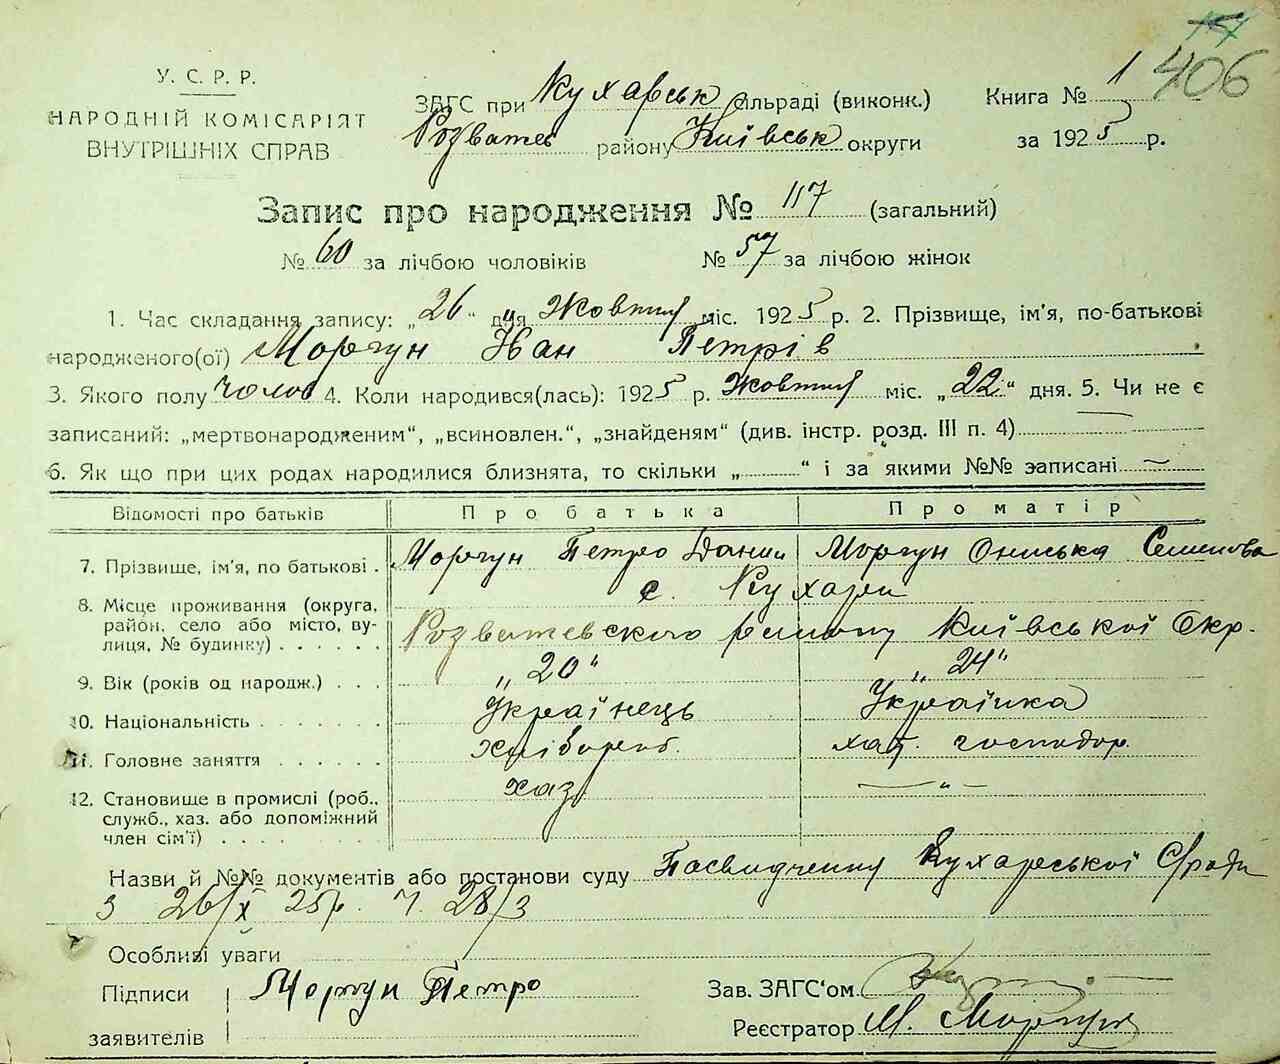 406
У. С. Р. Р.
НАРОДНІЙ КОМІСАРІЯТ
ВНУТРІШНІХ СПРАВ
ЗАГС при Кухарськ сільраді (виконк.)
Розважев району Київськ округи
Книга № 1
за 1925 р.
Запис про народження № 117 (загальний)
№ 60 за лічбою чоловіків № 57 за лічбою жінок
1. Час складання запису: „26“ дня Жовтня міс. 1925 р. 2. Прізвище, ім'я, по-батькові
народженого(ої) Моргун Іван Петрів
3. Якого полу чолов 4. Коли народився(лась): 1925 р. Жовтня міс. „22“ дня. 5. Чи не є
записаний: „мертвонародженим“, „всиновлен.“, „знайденям“ (див. інстр. розд. III п. 4) —
6. Як що при цих родах народилися близнята, то скільки „ “ і за якими №№ записані —
Відомості про батьків Про батька Про матір
7. Прізвище, ім'я, по батькові . Моргун Петро Данил Моргун Ониська Семенова
8. Місце проживання (округа, район, село або місто, вулиця, № будинку) с. Кухари
Розважевского району Київської Окр.
9. Вік (років од народж.) . . . „20“ „24“
10. Національність Українець Українка
11. Головне заняття Хлібороб. хат. господар.
12. Становище в промислі (роб., служб., хаз. або допоміжний член сім'ї) хаз — „ —
Назви й №№ документів або постанови суду Посвидчення Кухарської С/ради
з 26/X 25р. ч. 28/3
Особливі уваги
Підписи Моргун Петро Зав. ЗАГС'ом
заявителів Реєстратор М. Моргун